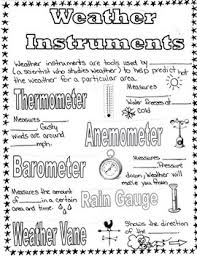 Weather
Instruments
Weather instruments are tools used by
(a scientist who studies weather) to help predict
the weather for a particular area.
hot
Thermometer
Measures
Water freezes at
cold
Measures
Gusty
winds are around
mph.
Anemometer
Barometer
Measures
Pressure
down, Weather will
make you frown
Measures the amount
of in a certain
area and time.
Rain Gauge
Weather Vane
Shows the direction
of the